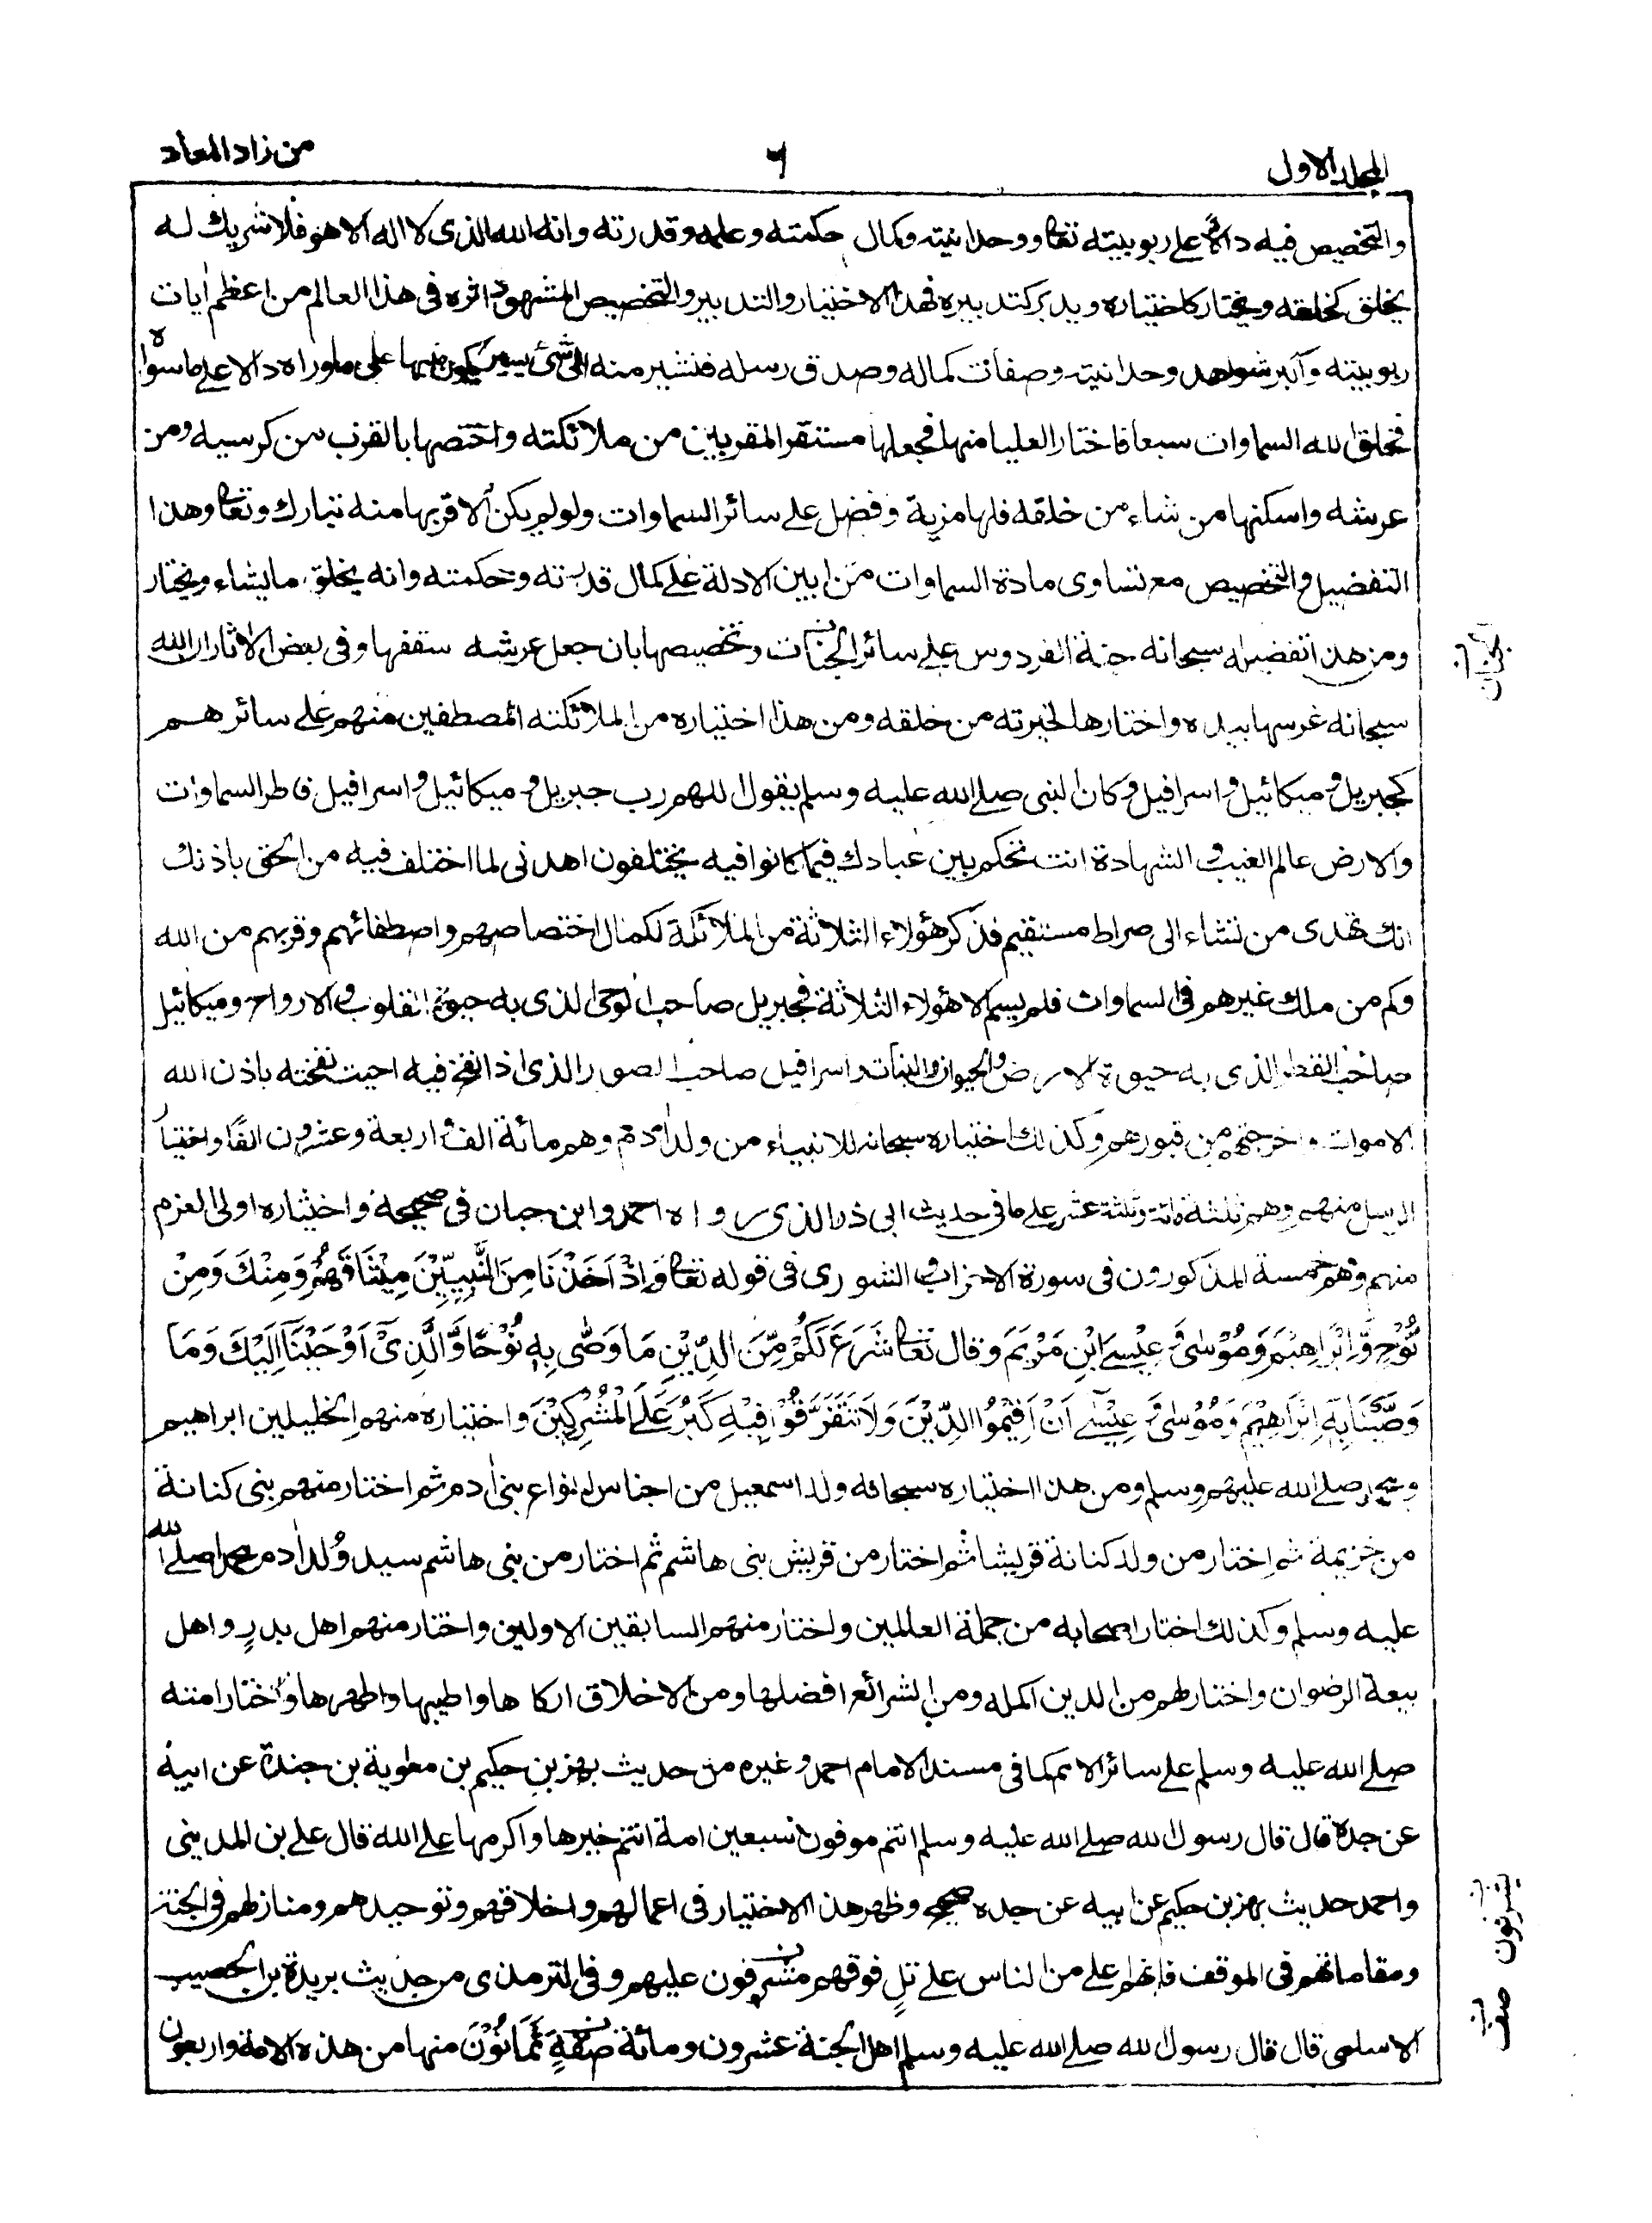 المجلد الاول
٦
من زاد المعاد
والتخصيص فيه دالا على ربوبيته تعالى ووحدانيته وكمال حكمته وعلمه وقدرته وانه الله الذى لا اله الا هو فلا شريك له
يخلق كخلقه ويختار كاختياره ويدبر كتدبيره فهذا الاختيار والتدبير والتخصيص المشهود اثره فى هذا العالم من اعظم ايات
ربوبيته واكبر شواهد وحدانيته وصفات كماله وصدق رسله فنشير منه الى شئ يسير يكون منبها على ما وراه دالا على ما سواه
فخلق الله السماوات سبعا فاختار العليا منها فجعلها مستقر المقربين من ملائكته واختصها بالقرب من كرسيه ومن
عرشه واسكنها من شاء من خلقه فلها مزية وفضل على سائر السماوات ولو لم يكن الا قربها منه تبارك وتعالى وهذا
التفضيل والتخصيص مع تساوى مادة السماوات من ابين الادلة على كمال قدرته وحكمته وانه يخلق ما يشاء ويختار
ومن هذا تفضيله سبحانه جنة الفردوس على سائر الجنات وتخصيصها بان جعل عرشه سقفها وفى بعض الاثار ان الله
سبحانه غرسها بيده واختارها لخيرته من خلقه ومن هذا اختياره من الملائكته المصطفين منهم على سائرهم
كجبريل وميكائيل واسرافيل وكان النبى صلے الله عليه وسلم يقول اللهم رب جبريل وميكائيل واسرافيل فاطر السماوات
والارض عالم الغيب والشهادة انت تحكم بين عبادك فيما كانوا فيه يختلفون اهدنى لما اختلف فيه من الحق باذنك
انك تهدى من تشاء الى صراط مستقيم فذكر هؤلاء الثلاثة من الملائكة لكمال اختصاصهم واصطفائهم وقربهم من الله
وكم من ملك غيرهم فى السماوات فلم يسم الا هؤلاء الثلاثة فجبريل صاحب الوحى الذى به حيوة القلوب والارواح وميكائيل
صاحب القطر الذى به حيوة الارض والحيوان والنبات واسرافيل صاحب الصور الذى اذا نفخ فيه احيت نفخته باذن الله
الاموات واخرجتهم من قبورهم وكذلك اختياره سبحانه للانبياء من ولد ادم وهم مائة الف واربعة وعشرون الفا واختيا
الرسل منهم وهم ثلثة مائة وثلثة عشر على ما فى حديث ابى ذر الذى رواه احمد وابن حبان فى صحيحه واختياره اولى العزم
منهم وهم خمسة المذكورون فى سورة الاحزاب والشورى فى قوله تعالى وَاِذْ اَخَذْنَا مِنَ النَّبِيِّيْنَ مِيْثَاقَهُمْ وَمِنْكَ وَمِنْ
نُّوْحٍ وَّاِبْرَاهِيْمَ وَمُوْسٰى وَعِيْسَے ابْنِ مَرْيَمَ وقال تعالى شَرَعَ لَكُمْ مِّنَ الدِّيْنِ مَا وَصّٰى بِهٖ نُوْحًا وَّالَّذِىْٓ اَوْحَيْنَا اِلَيْكَ وَمَا
وَصَّيْنَا بِهٖٓ اِبْرَاهِيْمَ وَمُوْسٰى وَعِيْسٰٓے اَنْ اَقِيْمُوا الدِّيْنَ وَلَا تَتَفَرَّقُوْا فِيْهِ كَبُرَ عَلَے الْمُشْرِكِيْنَ واختياره منهم الخليلين ابراهيم
ومحمد صلے الله عليهم وسلم ومن هذا اختياره سبحانه ولد اسمعيل من اجناس انواع بنى ادم ثم اختار منهم بنى كنانة
من خزيمة ثم اختار من ولد كنانة قريشا ثم اختار من قريش بنى هاشم ثم اختار من بنى هاشم سيد ولد ادم محمدا صلے الله
عليه وسلم وكذلك اختار اصحابه من جملة العالمين واختار منهم السابقين الاولين واختار منهم اهل بدر واهل
بيعة الرضوان واختار لهم من الدين اكمله ومن الشرائع افضلها ومن الاخلاق ازكاها واطيبها واطهرها واختار امته
صلے الله عليه وسلم على سائر الامم كما فى مسند الامام احمد وغيره من حديث بهز بن حكيم بن معوية بن جندة عن ابيه
عن جده قال قال رسول الله صلے الله عليه وسلم انتم موفون سبعين امة انتم خيرها واكرمها على الله قال على بن المدينى
واحمد حديث بهز بن حكيم عن ابيه عن جده صحيح وظهر هذا الاختيار فى اعمالهم واخلاقهم وتوحيدهم ومنازلهم فى الجنة
ومقاماتهم فى الموقف فانهم اعلى من الناس على تل فوقهم مشرفون عليهم وفى الترمذى من حديث بريدة بن الحصيب
الاسلمى قال قال رسول الله صلے الله عليه وسلم اهل الجنة عشرون ومائة صفة ثمانون منها من هذه الامة واربعون
الجنان
يشرفون
صف